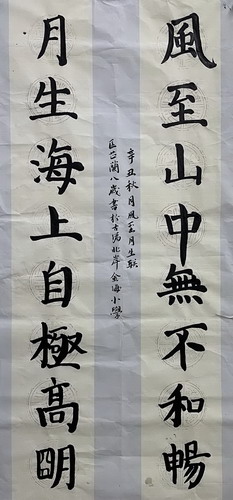 風至山中無不和暢
月生海上自極高明
辛丑秋月風至月生联
區芷蘭八歲書於古湯北岸金海小學